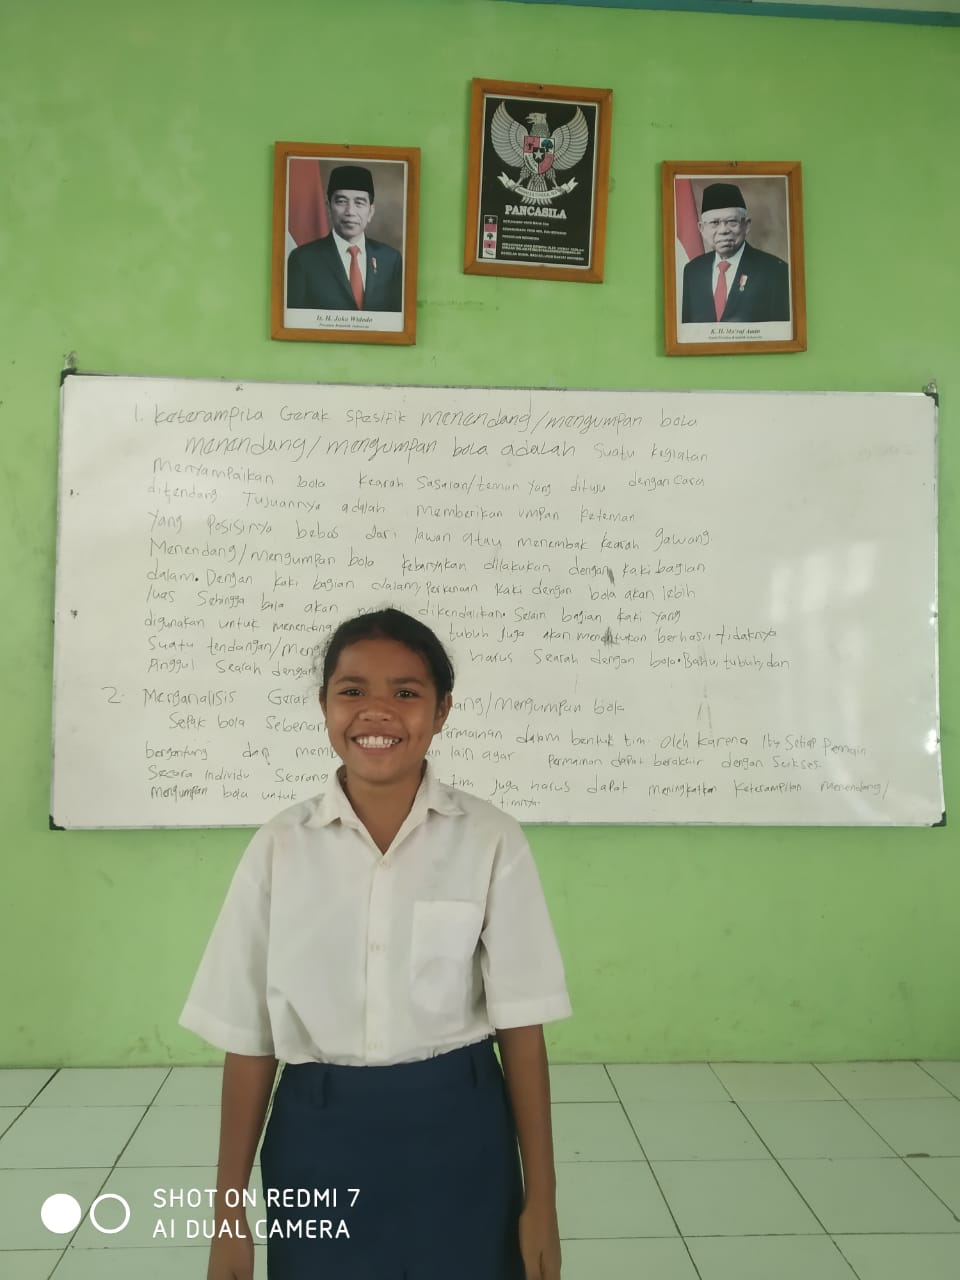 PANCASILA
Ir. H. Joko Widodo
Presiden Republik Indonesia
K. H. Ma'ruf Amin
1. Keterampila Gerak spesifik menendang/mengumpan bola
menendang/mengumpan bola adalah suatu kegiatan
Menyampaikan bola kearah sasaran/teman yang dituju dengan cara
ditendang Tujuannya adalah memberikan umpan keteman
yang posisinya bebas dari lawan atau menembak kearah gawang
Menendang/mengumpan bola kebanyakan dilakukan dengan kaki bagian
dalam. Dengan kaki bagian dalam, Perkenaan kaki dengan bola akan lebih
luas Sehingga bola akan dikendalikan. Selain bagian kaki yang
digunakan untuk menendang tubuh juga akan menentukan berhasil tidaknya
Suatu tendangan/meng harus Searah dengan bola. Bahu, tubuh, dan
Anggul Searah dengan
2. Menganalisis Gerak ang/Mengumpan bola
Sepak bola Sebenar Permainan dalam bentuk tim. Oleh karena itu Setiap Pemain
bergantung dan mem lain agar Permainan dapat berakhir dengan Sukses.
Secara individu Seorang tim juga harus dapat meningkatkan keterampilan menendang/
mengumpan bola untuk timnya.
SHOT ON REDMI 7
AI DUAL CAMERA